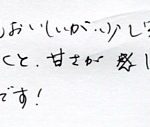 おいしいが、少し
くと、甘さが感じ
です！